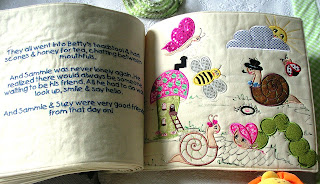 They all went into Betty's toadstool & had
scones & honey for tea, chatting between
mouthfuls.
And Sammie was never lonely again. He
realized there would always be someone
waiting to be his friend. All he had to do was
look up, smile & say hello.
And Sammie & Suzy were very good friends
from that day on!